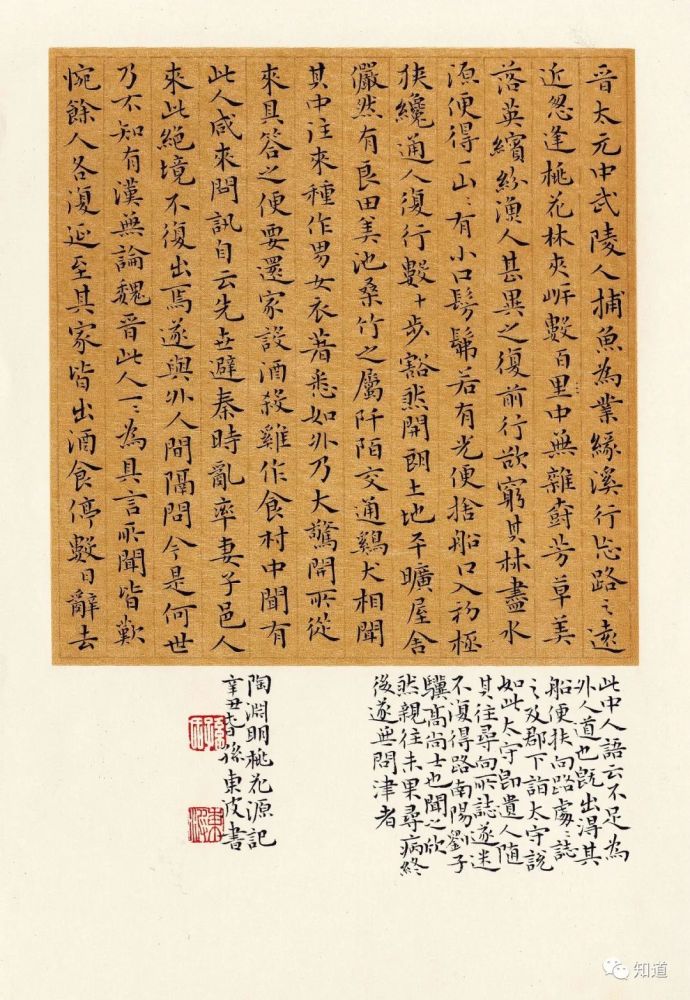 晉太元中武陵人捕魚為業緣溪行忘路之遠
近忽逢桃花林夾岸數百里中無雜樹芳草美
落英繽紛漁人甚異之復前行欲窮其林盡水
源便得一山〻有小口髣髴若有光便捨船口入初極
狹纔通人復行數十步豁然開朗土地平曠屋舍
儼然有良田美池桑竹之屬阡陌交通鷄犬相聞
其中往來種作男女衣著悉如外乃大驚問所從
來具答之便要還家設酒殺雞作食村中聞有
此人咸來問訊自云先世避秦時亂率妻子邑人
來此絕境不復出焉遂與外人間隔問今是何世
乃不知有漢無論魏晉此人一〻為具言所聞皆歎
惋餘人各復延至其家皆出酒食停數日辭去
此中人語云不足為
外人道也既出得其
船便扶向路處〻誌
之及郡下詣太守說
如此太守即遣人隨
其往尋向所誌遂迷
不復得路南陽劉子
驥高尚士也聞之欣
然親往未果尋病終
後遂無問津者
陶淵明桃花源記
辛丑春孫東波書
知道